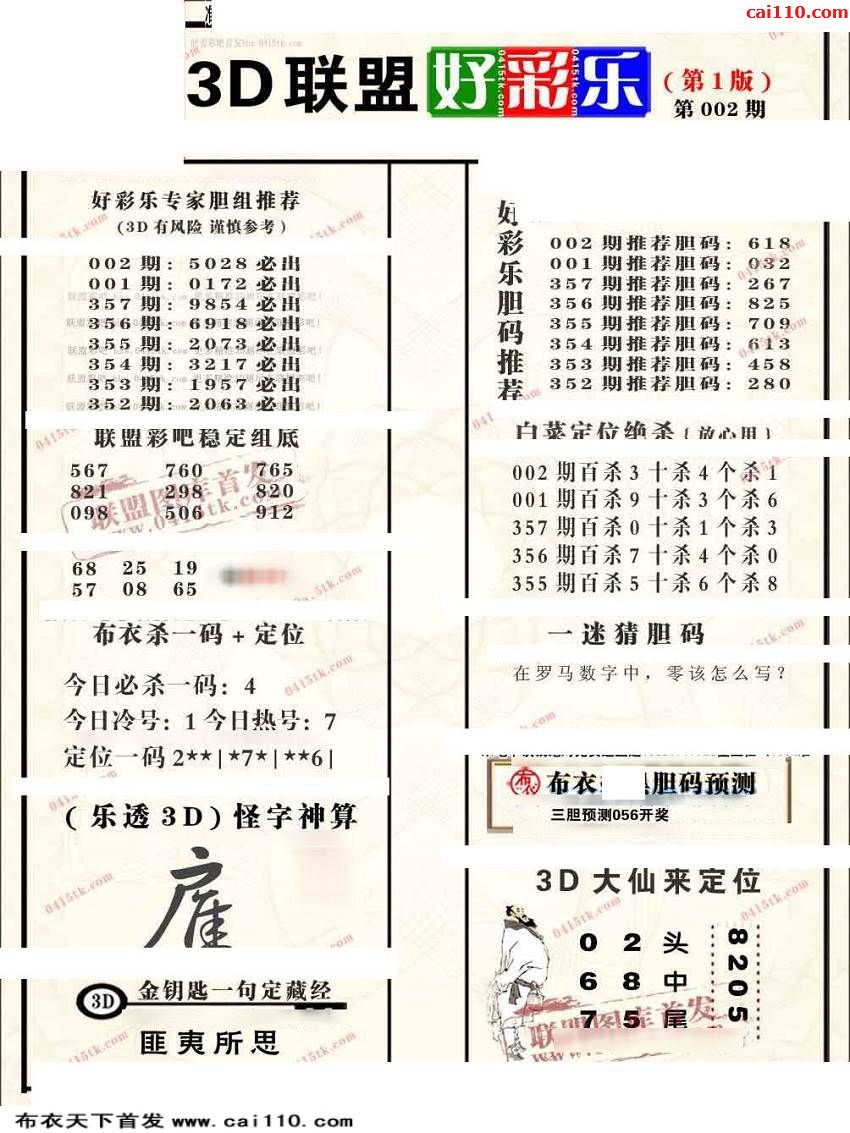 cai110.com
3D 联盟 好彩乐 (第1版)
第 002 期
好彩乐专家胆组推荐
(3D 有风险 谨慎参考)
002 期: 5028 必出
001 期: 0172 必出
357 期: 9854 必出
356 期: 6918 必出
355 期: 2073 必出
354 期: 3217 必出
353 期: 1957 必出
352 期: 2063 必出
联盟彩吧稳定组底
567 760 765
821 298 820
098 506 912
68 25 19
57 08 65
布衣杀一码 + 定位
今日必杀一码: 4
今日冷号: 1 今日热号: 7
定位一码 2**|*7*|**6|
(乐透 3D) 怪字神算
3D 金钥匙一句定藏经
匪夷所思
好彩乐胆码推荐
002 期推荐胆码: 618
001 期推荐胆码: 032
357 期推荐胆码: 267
356 期推荐胆码: 825
355 期推荐胆码: 709
354 期推荐胆码: 613
353 期推荐胆码: 458
352 期推荐胆码: 280
白菜定位绝杀 { 放心用 }
002 期百杀 3 十杀 4 个杀 1
001 期百杀 9 十杀 3 个杀 6
357 期百杀 0 十杀 1 个杀 3
356 期百杀 7 十杀 4 个杀 0
355 期百杀 5 十杀 6 个杀 8
一迷猜胆码
在罗马数字中，零该怎么写？
布衣 胆码预测
三胆预测056开奖
3D 大仙来定位
0 2 头
6 8 中
7 5 尾
8205
联盟图库首发
www.0415tk.com
0415tk.com
布衣天下首发 www.cai110.com